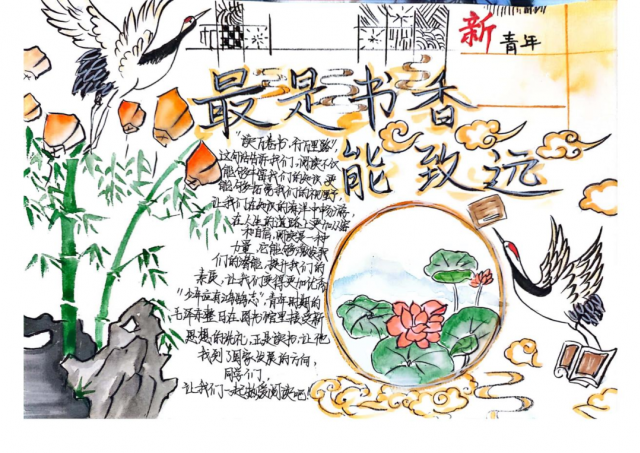 新青年
最是书香
能致远
"读万卷书,行万里路"
这句话告诉我们,阅读不仅
能够丰富我们的知识,更
能够拓宽我们的视野,
让我们在知识的海洋中畅游,
在人生的道路上更加从容
和自信,阅读是一种
力量,它能够激发我
们的潜能,提升我们的
素质,让我们变得更加优秀
"少年应有鸿鹄志",青年时期的
毛泽东整日在图书馆里接受新
思想的洗礼,正是读书,让他
找到了国家发展的方向,
同学们,
让我们一起热爱阅读吧!